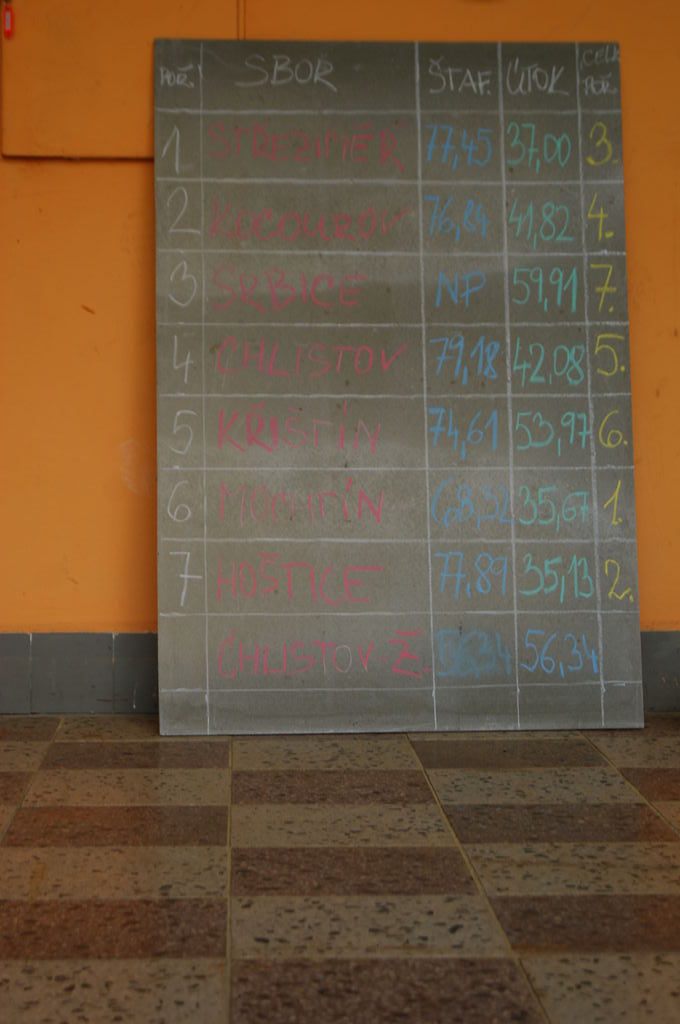 POŘ. SBOR ŠTAF. ÚTOK CELK. POŘ.
1 STŘEZIMĚŘ 77,45 37,00 3.
2 KOCOUROV 76,84 41,82 4.
3 SRBICE NP 59,91 7.
4 CHLISTOV 79,18 42,08 5.
5 KŘIŠTÍN 74,61 53,97 6.
6 MOCHTÍN 68,32 35,67 1.
7 HOŠTICE 77,89 35,13 2.
CHLISTOV Ž. 56,34 56,34